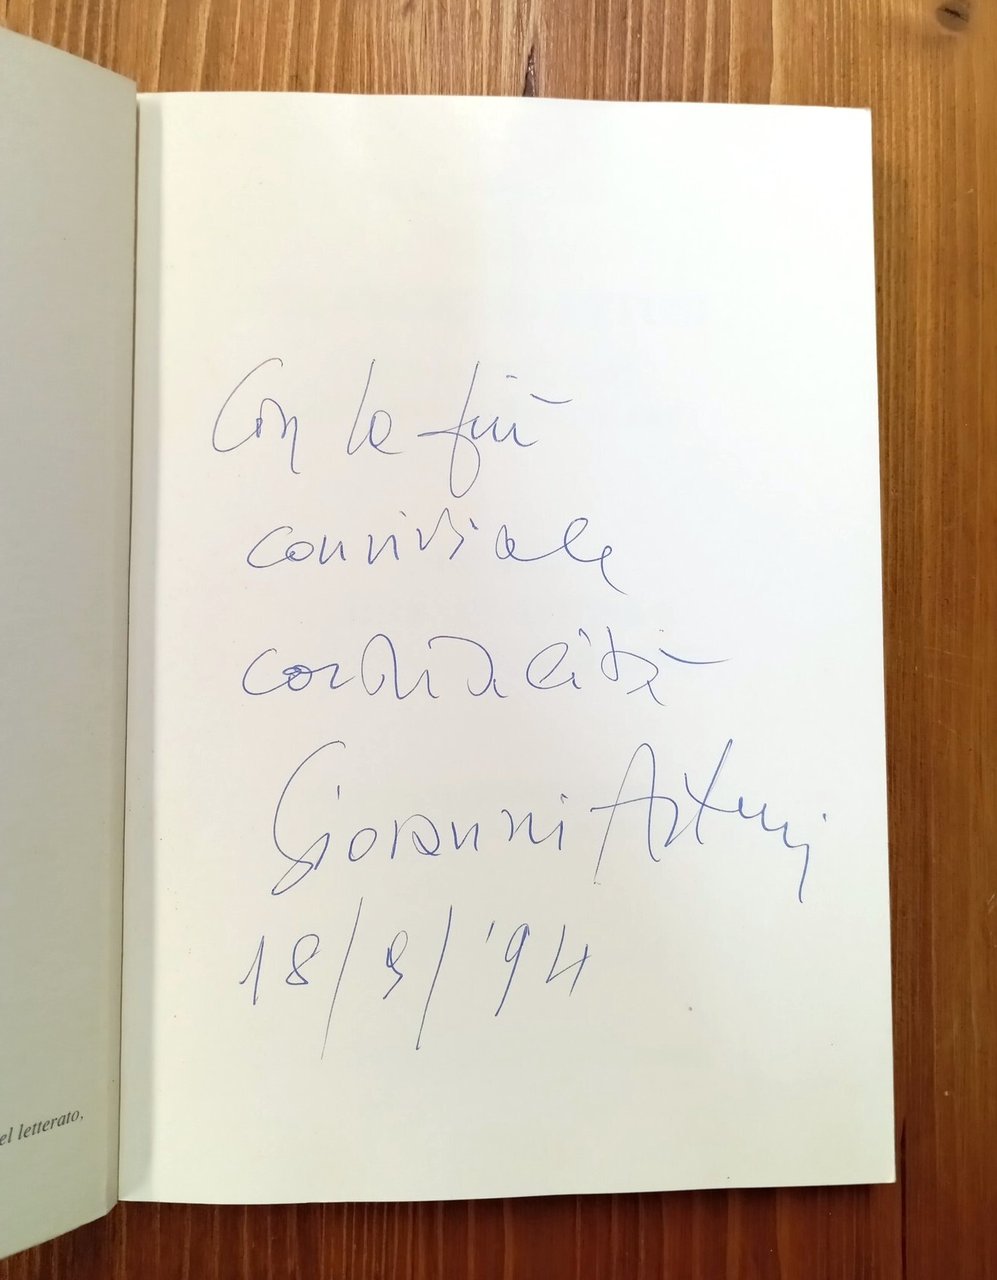 el letterato,
Con la più
conviviale
cordialità
Giovanni
18/9/'94